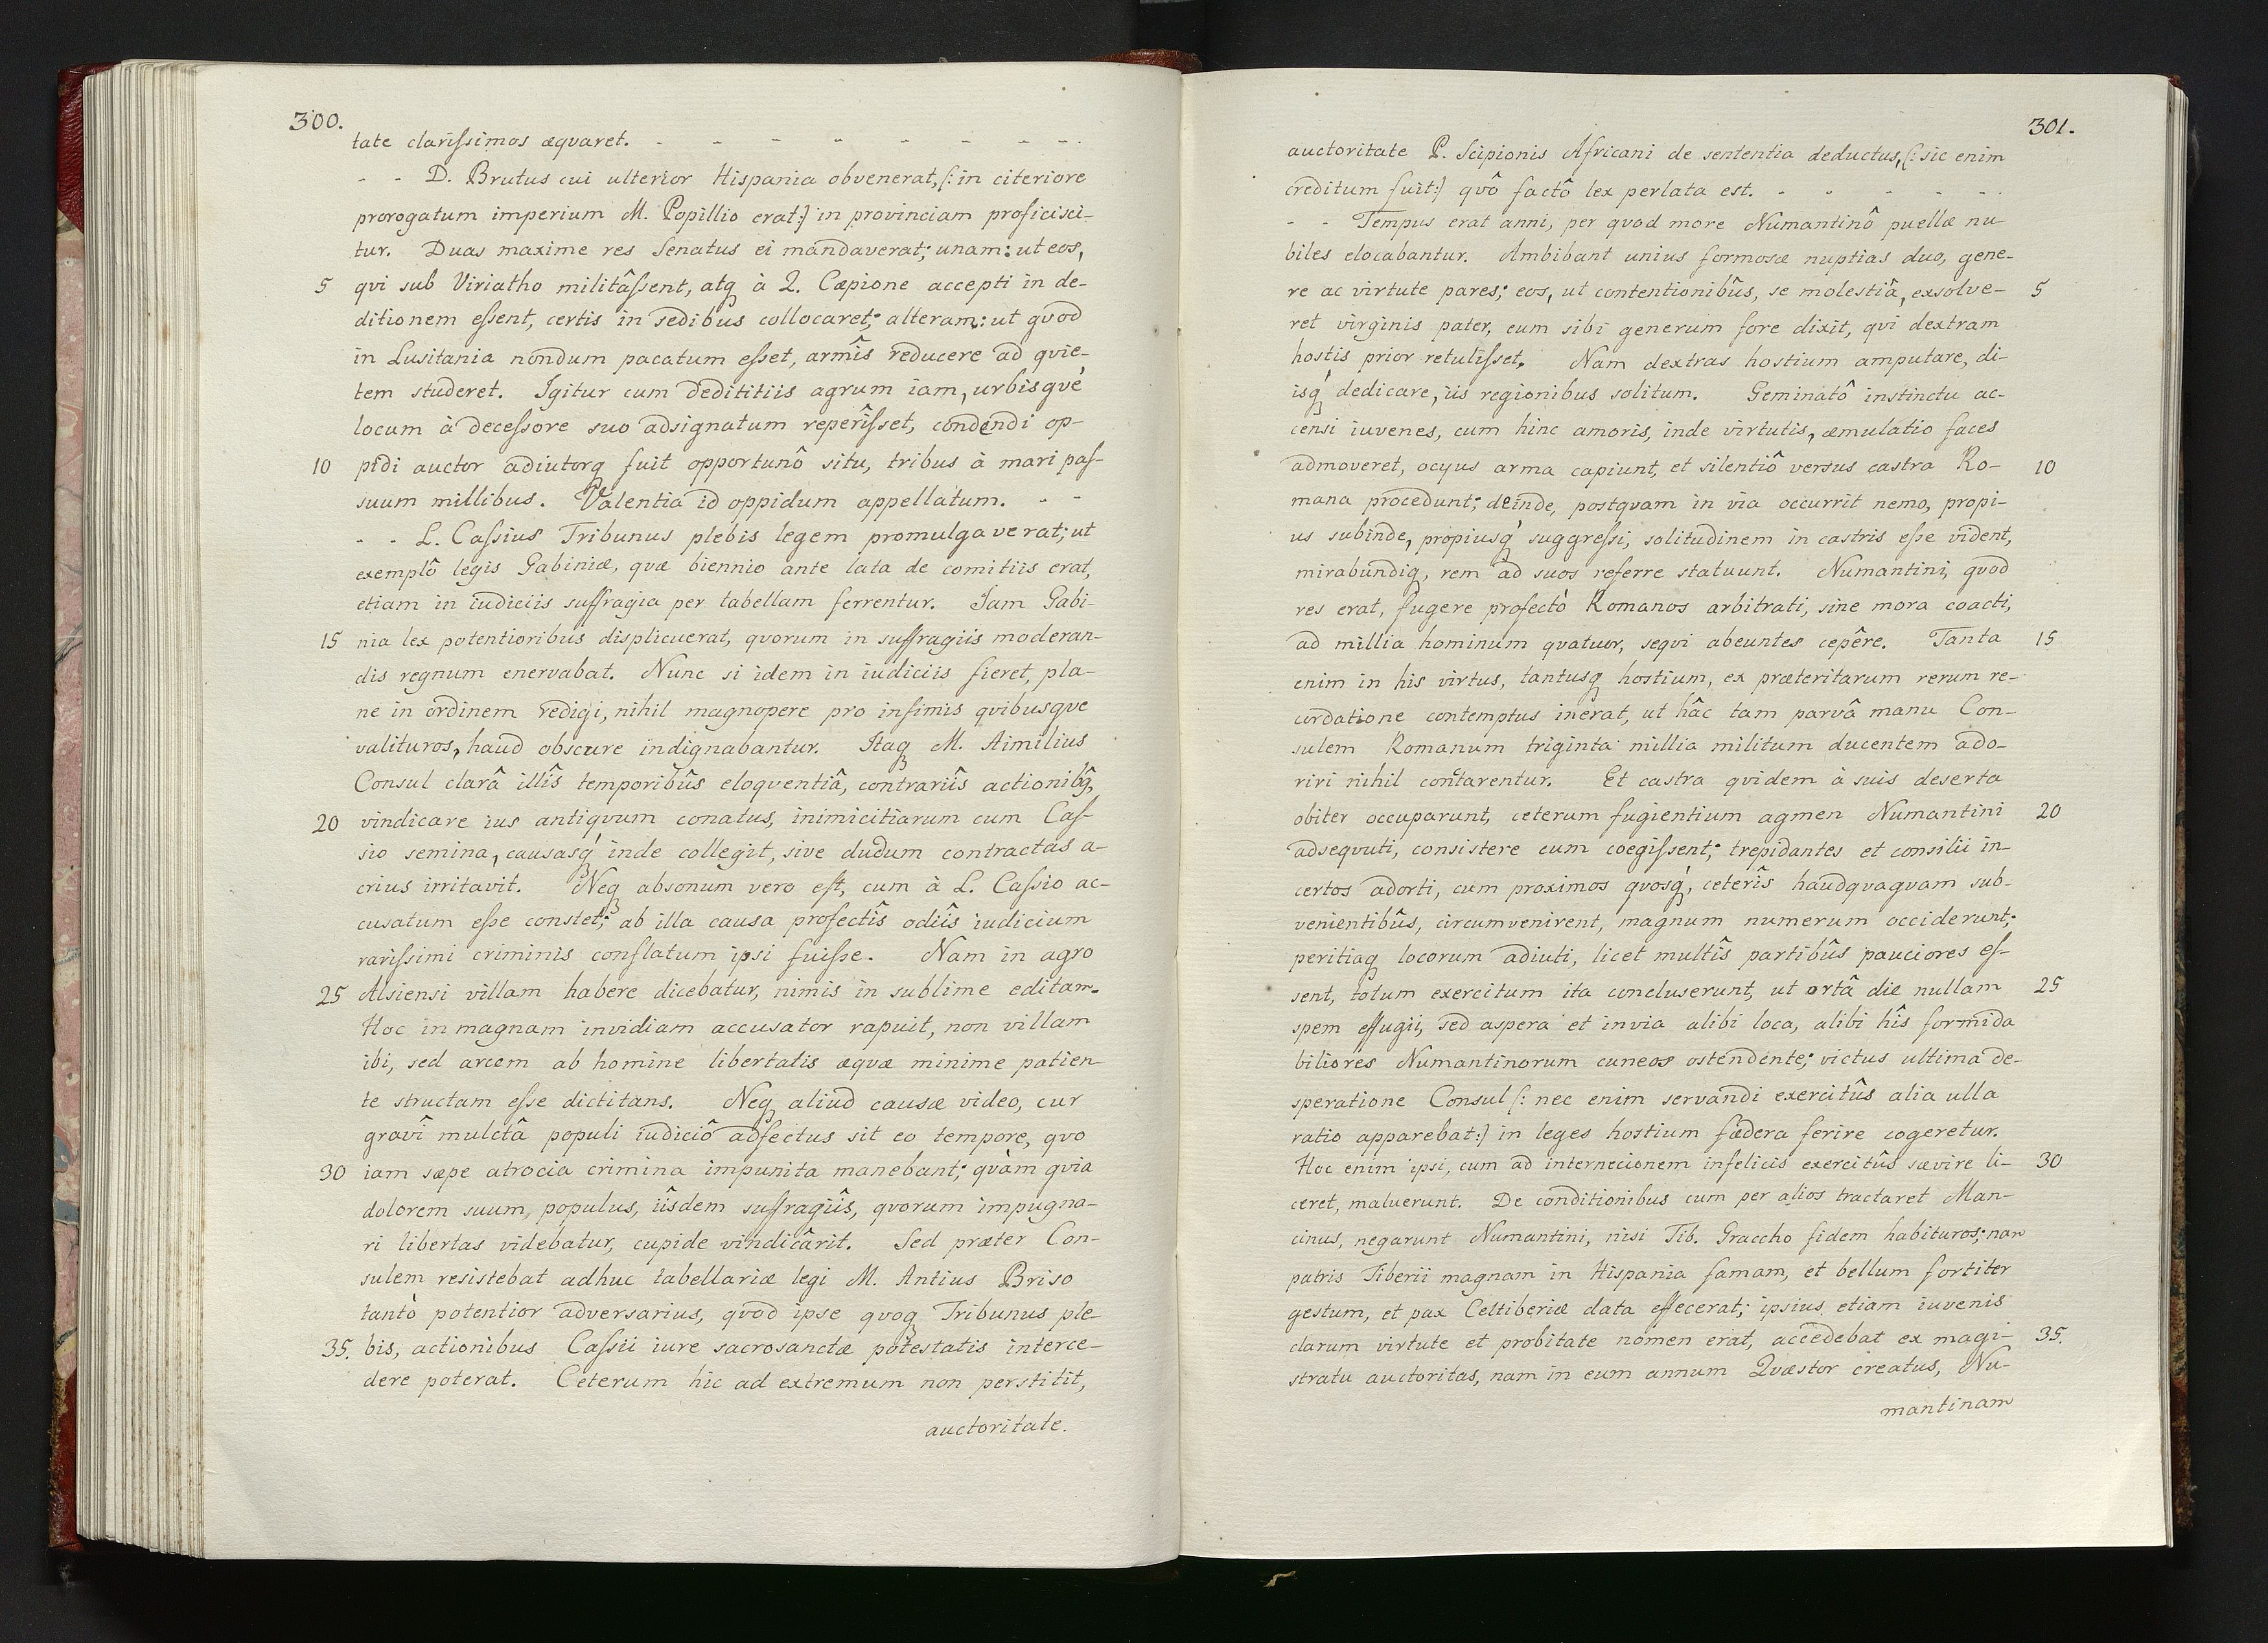 300.
tate clarissimos æquaret. - - - - - - - -
- - D. Brutus cui ulterior Hispania obvenerat, (: in citeriore
prorogatum imperium M. Popillio erat :) in provinciam proficisci-
tur. Duas maxime res Senatus ei mandaverat; unam: ut eos,
5 qvi sub Viriatho militâssent, atq à Q. Cæpione accepti in de-
ditionem essent, certis in sedibus collocaret; alteram: ut qvod
in Lusitania nondum pacatum esset, armîs reducere ad qvie-
tem studeret. Igitur cum dedititiis agrum iam, urbisqvè
locum à decessore suo adsignatum reperîsset, condendi op-
10 pidi auctor adiutorq fuit opportunô situ, tribus à mari pas-
suum millibus. Valentia id oppidum appellatum. - -
- - L. Cassius Tribunus plebis legem promulgaverat; ut
exemplô legis Gabiniæ, qvæ biennio ante lata de comitiis erat,
etiam in iudiciis suffragia per tabellam ferrentur. Iam Gabi-
15 nia lex potentioribus displicuerat, qvorum in suffragiis moderan-
dis regnum enervabat. Nunc si idem in iudiciis fieret, pla-
ne in ordinem redigi, nihil magnopere pro infimis qvibusqve
valituros, haud obscure indignabantur. Itaq M. Aimilius
Consul clarâ illîs temporibûs eloqventiâ, contrariîs actionibq̂,
20 vindicare ius antiqvum conatus, inimicitiarum cum Cas-
sio semina, causasq́ inde collegit, sive dudum contractas a-
crius irritavit. Neq absonum vero est, cum à L. Cassio ac-
cusatum esse constet; ab illa causa profectîs odiîs iudicium
rarissimi criminis conflatum ipsi fuisse. Nam in agro
25 Alsiensi villam habere dicebatur, nimis in sublime editam.
Hoc in magnam invidiam accusator rapuit, non villam
ibi, sed arcem ab homine libertatis æqvæ minime patien-
te structam esse dictitans. Neq aliud causæ video, cur
gravî mulctâ populi iudiciô adfectus sit eo tempore, qvo
30 iam sæpe atrocia crimina impunita manebant; qvàm qvia
dolorem suum, populus, iîsdem suffragiîs, qvorum impugna-
ri libertas videbatur, cupide vindicârit. Sed præter Con-
sulem resistebat adhuc tabellariæ legi M. Antius Briso
tantò potentior adversarius, qvod ipse qvoq Tribunus ple-
35. bis, actionibus Cassii iure sacrosanctæ potestatis interce-
dere poterat. Ceterum hic ad extremum non perstitit,
auctoritate.
301.
auctoritate P. Scipionis Africani de sententia deductus, (: sic enim
creditum fuit :) qvô factô lex perlata est. - - - - - -
- - Tempus erat anni, per qvod more Numantinô puellæ nu-
biles elocabantur. Ambibant unius formosæ nuptias duo, gene-
re ac virtute pares; eos, ut contentionibûs, se molestiâ, exsolve- 5
ret virginis pater, eum sibi generum fore dixit, qvi dextram
hostis prior retulisset. Nam dextras hostium amputare, di-
isq́ dedicare, iis regionibus solitum. Geminatô instinctu ac-
censi iuvenes, cum hinc amoris, inde virtutis, æmulatio faces
admoveret, ocyus arma capiunt, et silentiô versus castra Ro- 10
mana procedunt; deinde, postqvam in via occurrit nemo, propi-
us subinde, propiusq́ suggressi, solitudinem in castris esse vident,
mirabundiq, rem ad suos referre statuunt. Numantini, qvod
res erat, fugere profectò Romanos arbitrati, sine mora coacti,
ad millia hominum qvatuor, seqvi abeuntes cepêre. Tanta 15
enim in his virtus, tantusq hostium, ex præteritarum rerum re-
cordatione contemptus inerat, ut hâc tam parvâ manu Con-
sulem Romanum triginta millia militum ducentem ado-
riri nihil contarentur. Et castra qvidem à suis deserta
obiter occuparunt, ceterum fugientium agmen Numantini 20
adseqvuti, consistere cum coegissent; trepidantes et consilii in-
certos adorti, cum proximos qvosq́, ceterîs haudqvaqvam sub-
venientibûs, circumvenirent, magnum numerum occiderunt;
peritiaq locorum adiuti, licet multîs partibûs pauciores es-
sent, totum exercitum ita concluserunt, ut ortâ die nullam 25
spem effugii, sed aspera et invia alibi loca, alibi hîs formida
biliores Numantinorum cuneos ostendente; victus ultima de-
speratione Consul (: nec enim servandi exercitûs alia ulla
ratio apparebat :) in leges hostium fædera ferire cogeretur.
Hoc enim ipsi, cum ad internecionem infelicis exercitûs sævire li- 30
ceret, maluerunt. De conditionibus cum per alios tractaret Man-
cinus, negarunt Numantini, nisi Tib. Graccho fidem habituros; nam
patris Tiberii magnam in Hispania famam, et bellum fortiter
gestum, et pax Celtiberiæ data effecerat; ipsius etiam iuvenis
clarum virtute et probitate nomen erat, accedebat ex magi- 35.
stratu auctoritas, nam in eum annum Qvæstor creatus, Nu-
mantinam